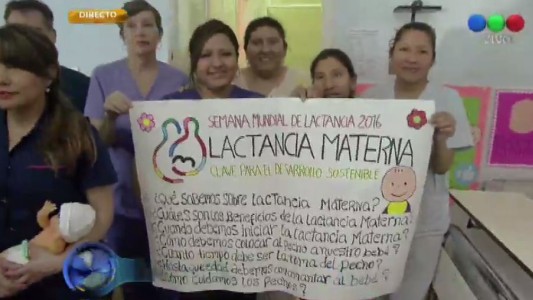 DIRECTO
SEMANA MUNDIAL DE LACTANCIA 2016
LACTANCIA MATERNA
CLAVE PARA EL DESARROLLO SOSTENIBLE
¿QUÉ SABEMOS SOBRE LACTANCIA MATERNA?
¿CUÁLES SON LOS BENEFICIOS DE LA LACTANCIA MATERNA
¿CUANDO DEBEMOS INICIAR LA LACTANCIA MATERNA?
¿CÓMO DEBEMOS COLOCAR AL PECHO A NUESTRO BEBÉ?
¿CUANTO TIEMPO DEBE SER LA TOMA DEL PECHO?
¿HASTA QUE EDAD DEBEMOS AMAMANTAR AL BEBÉ?
CÓMO CUIDAMOS LOS PECHOS?